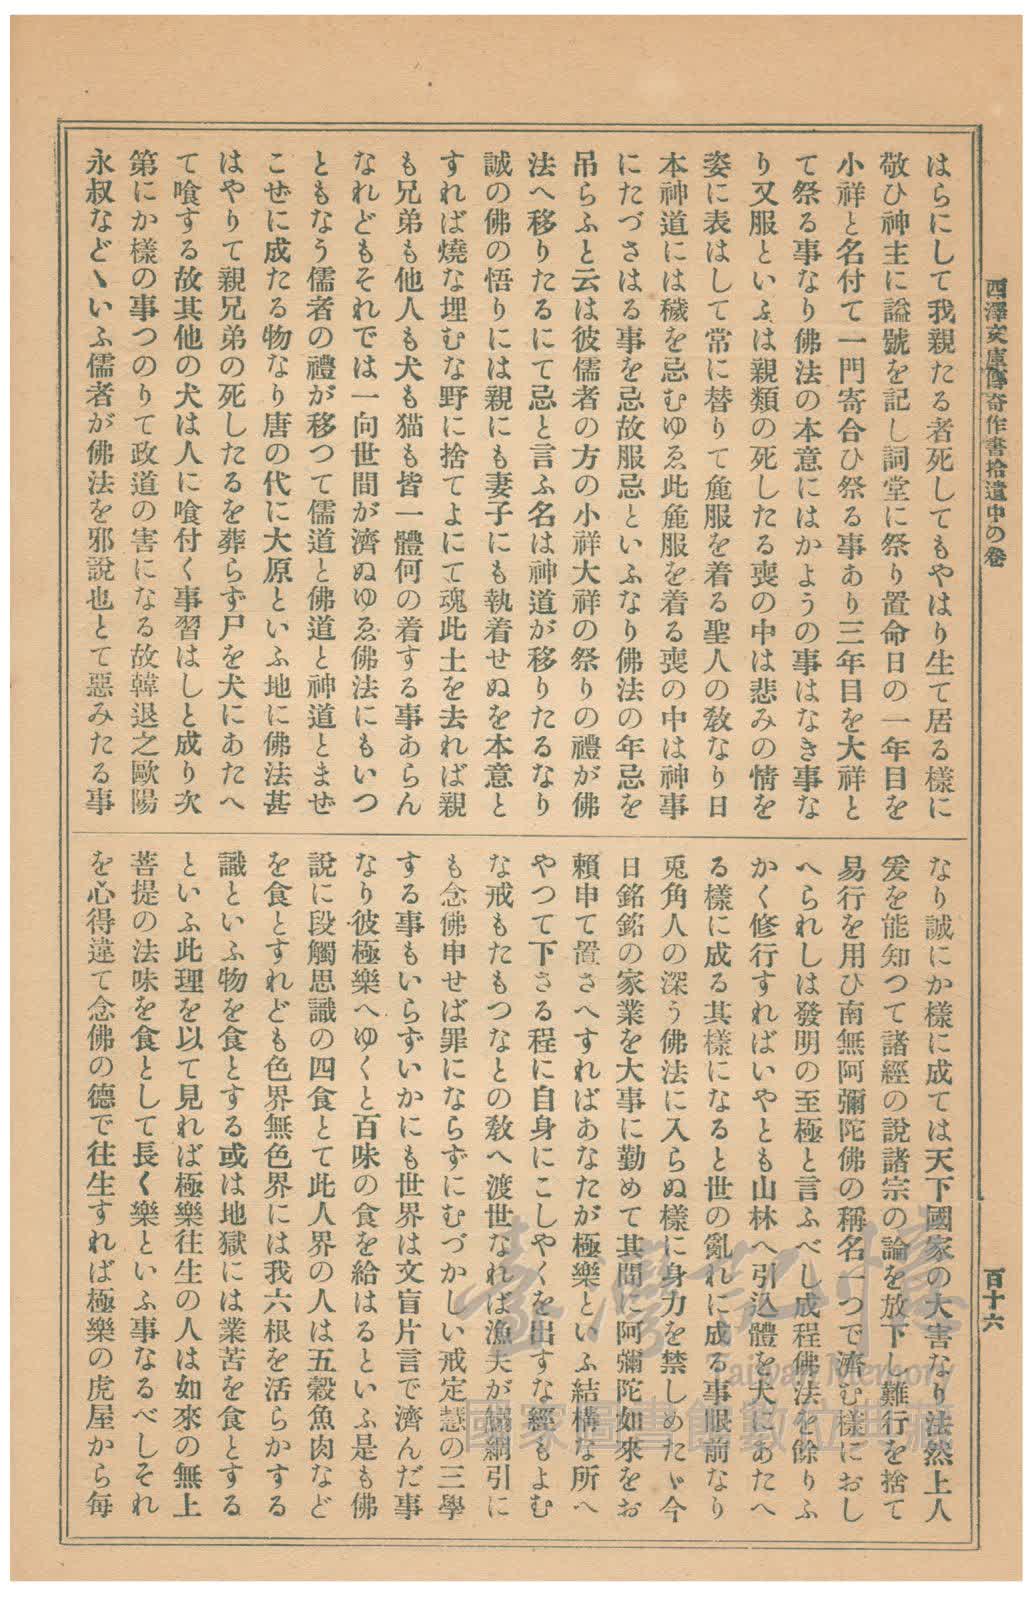 西澤文庫傳奇作書拾遺中の卷
はらにして我親たる者死してもやはり生て居る樣に
敬ひ神主に諡號を記し詞堂に祭り置命日の一年目を
小祥と名付て一門寄合ひ祭る事あり三年目を大祥と
て祭る事なり佛法の本意にはかようの事はなき事な
り又服といふは親類の死したる喪の中は悲みの情を
姿に表はして常に替りて麁服を着る聖人の敎なり日
本神道には穢を忌むゆゑ此麁服を着る喪の中は神事
にたづさはる事を忌故服忌といふなり佛法の年忌を
吊らふと云は彼儒者の方の小祥大祥の祭りの禮が佛
法へ移りたるにて忌と言ふ名は神道が移りたるなり
誠の佛の悟りには親にも妻子にも執着せぬを本意と
すれば燒な埋むな野に捨てよにて魂此土を去れば親
も兄弟も他人も犬も猫も皆一體何の着する事あらん
なれどもそれでは一向世間が濟ぬゆゑ佛法にもいつ
ともなう儒者の禮が移つて儒道と佛道と神道とまぜ
こぜに成たる物なり唐の代に大原といふ地に佛法甚
はやりて親兄弟の死したるを葬らず尸を犬にあたへ
て喰する故其他の犬は人に喰付く事習はしと成り次
第にか樣の事つのりて政道の害になる故韓退之歐陽
永叔などゝいふ儒者が佛法を邪說也とて惡みたる事
なり誠にか樣に成ては天下國家の大害なり法然上人
爰を能知つて諸經の說諸宗の論を放下し難行を捨て
易行を用ひ南無阿彌陀佛の稱名一つで濟む樣におし
へられしは發明の至極と言ふべし成程佛法を餘りふ
かく修行すればいやとも山林へ引込體を犬にあたへ
る樣に成る其樣になると世の亂れに成る事眼前なり
兎角人の深う佛法に入らぬ樣に身力を禁しめたゞ今
日銘銘の家業を大事に勤めて其間に阿彌陀如來をお
賴申て置さへすればあなたが極樂といふ結構な所へ
やつて下さる程に自身にこしやくを出すな經もよむ
な戒もたもつなとの敎へ渡世なれば漁夫が綱引に
も念佛申せば罪にならずにむづかしい戒定慧の三學
する事もいらずいかにも世界は文盲片言で濟んだ事
なり彼極樂へゆくと百味の食を給はるといふ是も佛
說に段觸思識の四食とて此人界の人は五穀魚肉など
を食とすれども色界無色界には我六根を活らかする
識といふ物を食とする或は地獄には業苦を食とする
といふ此理を以て見れば極樂往生の人は如來の無上
菩提の法味を食として長く樂といふ事なるべしそれ
を心得違て念佛の德で往生すれば極樂の虎屋から每
百十六
臺灣記憶
Taiwan Memory
國家圖書館數位典藏